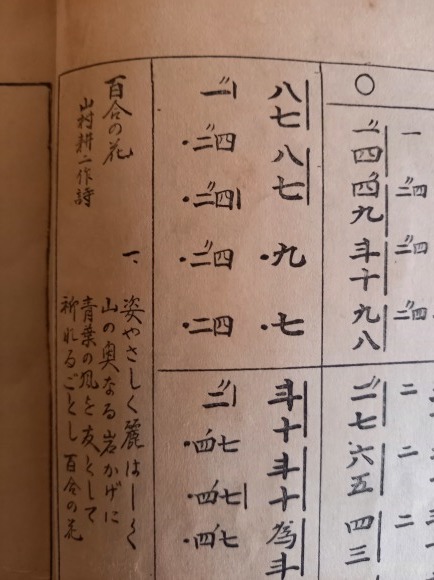 ○
斗十
九八
七
六五
四三
八七
八七
・九
・七
斗十
斗十
為斗
・二四
・二四
・二四
・二四
・四七
・四七
・四七
百合の花
山村耕二作詩
一、姿やさしく麗はしく
山の奥なる岩かげに
青葉の風を友として
祈れるごとし百合の花